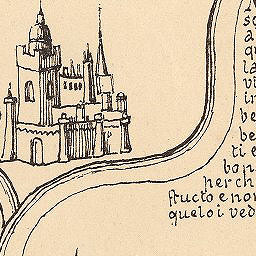 s
a
qu
la
vi
in
be
be
ti e
bon
perch
fructo e non
quelo i ved